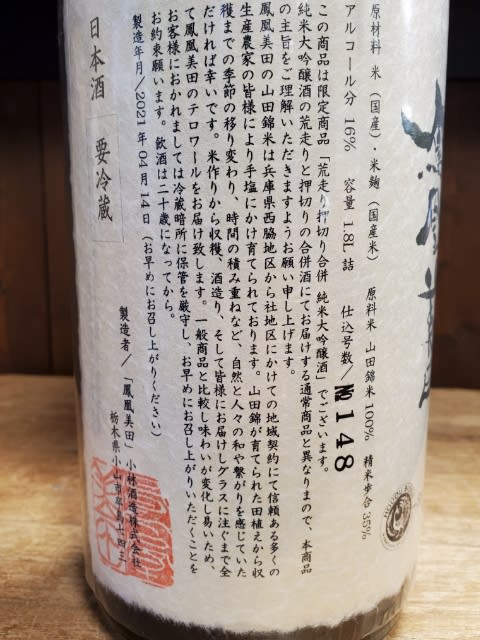 鳳凰美田
原材料 米(国産)・米麹(国産米) 原料米 山田錦米 100% 精米歩合 35%
アルコール分 16% 容量 1.8L 詰 仕込号数/№148
この商品は限定商品「荒走り押切り合併 純米大吟醸酒」でございます。
純米大吟醸酒の荒走りと押切りの合併酒にてお届けする通常商品と異なりますので、本商品
の主旨をご理解いただきますようお願い申し上げます。
鳳凰美田の山田錦米は兵庫県西脇地区から社地区にかけての地域契約にて信頼ある多くの
生産農家の皆様により手塩にかけ育てられております。山田錦が育てられた田植えから収
穫までの季節の移り変わり、時間の積み重ねなど、自然と人々の和や繋がりを感じていた
だければ幸いです。米作りから収穫、酒造り、そして皆様にお届けしグラスに注ぐまで全
て鳳凰美田のテロワールをお届け致します。一般商品と比較し味わいが変化し易いため、
お客様におかれましては冷蔵暗所に保管を厳守し、お早めにお召し上がりいただくことを
お約束願います。飲酒は二十歳になってから。
製造年月/2021年04月14日(お早めにお召し上がりください)
日本酒 要冷蔵
製造者/「鳳凰美田」小林酒造株式会社
栃木県小山市卒島一二四三